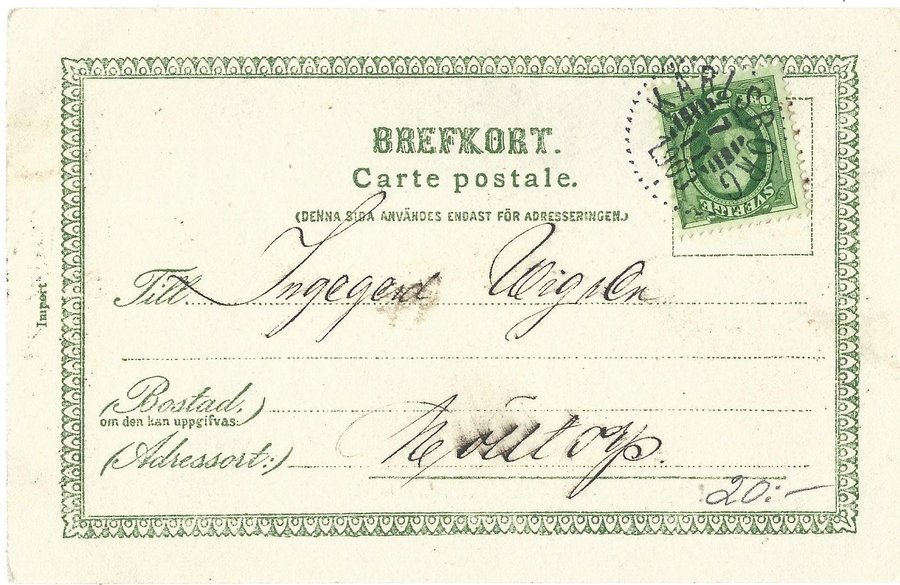 BREFKORT.
Carte postale.
(DENNA SIDA ANVÄNDES ENDAST FÖR ADRESSERINGEN.)
KARLSBORG
1903
SVERIGE
Till Ingegerd
Import
(Bostad.)
om den kan uppgifvas.
(Adressort:)
20:-